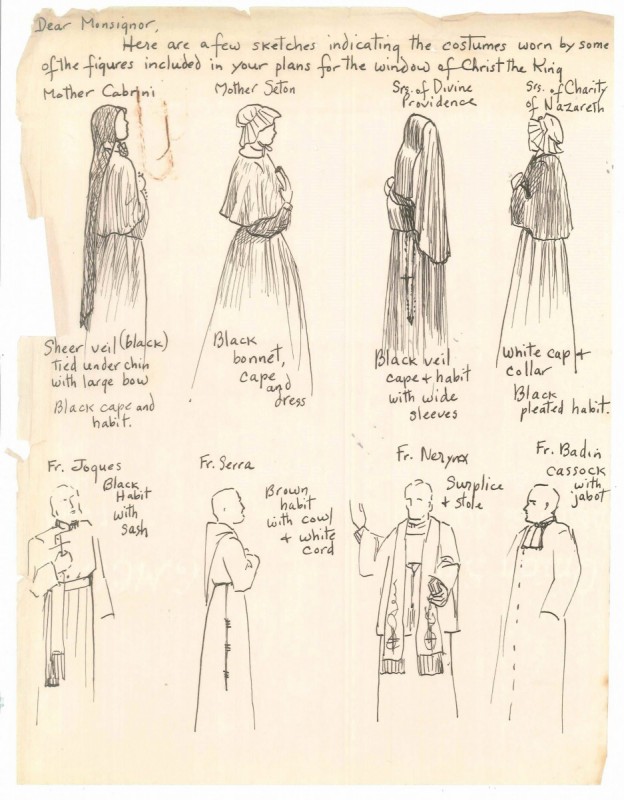 Dear Monsignor,
Here are a few sketches indicating the costumes worn by some
of the figures included in your plans for the window of Christ the King
Mother Cabrini
Mother Seton
Srs. of Divine
Providence
Srs. of Charity
of Nazareth
Sheer veil (black)
Tied under chin
with large bow
Black cape and
habit.
Black
bonnet,
cape
and
dress
Black veil
cape + habit
with wide
sleeves
White cap +
collar
Black
pleated habit.
Fr. Joques
Black
Habit
with
sash
Fr. Serra
Brown
habit
with cowl
+ white
cord
Fr. Nerynx
Surplice
+ stole
Fr. Badin
cassock
with
jabot